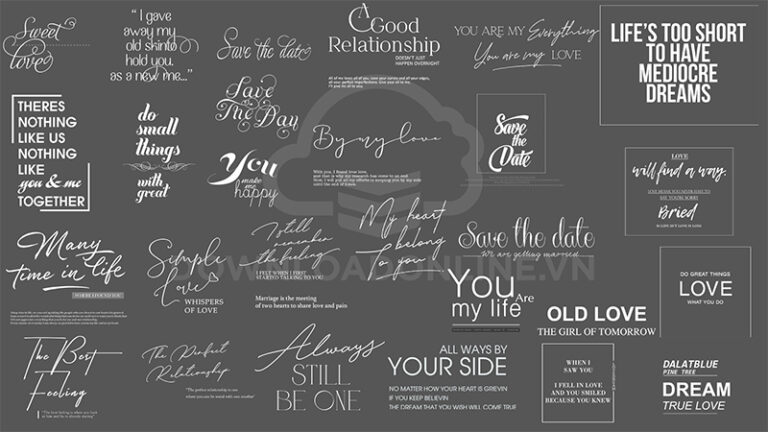 Sweet
love
" I gave
away my
old skin to
hold you,
as a new me..."
Save the date
A
Good
Relationship
DOESN'T JUST
HAPPEN OVERNIGHT
YOU ARE MY Everything
You are my LOVE
LIFE'S TOO SHORT
TO HAVE
MEDIOCRE
DREAMS
THERES
NOTHING
LIKE US
NOTHING
LIKE
you & me
TOGETHER
do
small
things
with
great
Love
The Day
You
make me
happy
By my love
With you, I found true love,
Save
the
Date
LOVE
will find a way.
Bried
Many
time in life
WHERE I FOUND YOU
Simple
Love
WHISPERS
OF LOVE
I still
remember
the feeling
I FELT WHEN I FIRST
STARTED TALKING TO YOU
Marriage is the meeting
of two hearts to share love and pain
My heart
belong
to you
Save the date
we are getting married
You Are
my life
OLD LOVE
THE GIRL OF TOMORROW
DO GREAT THINGS
LOVE
WHAT YOU DO
DOWNLOADONLINE.VN
The Best
Feeling
"The best feeling is when you look
at him and he is already staring"
The Perfect
Relationship
"The perfect relationship is one
where you can be weird with one another"
Always
STILL
BE ONE
ALL WAYS BY
YOUR SIDE
NO MATTER HOW YOUR HEART IS GRIEVIN
IF YOU KEEP BELIEVIN
THE DREAM THAT YOU WISH WILL COME TRUE
WHEN I
SAW YOU
I FELL IN LOVE
AND YOU SMILED
BECAUSE YOU KNEW
DALATBLUE
PINE TREE
DREAM
TRUE LOVE